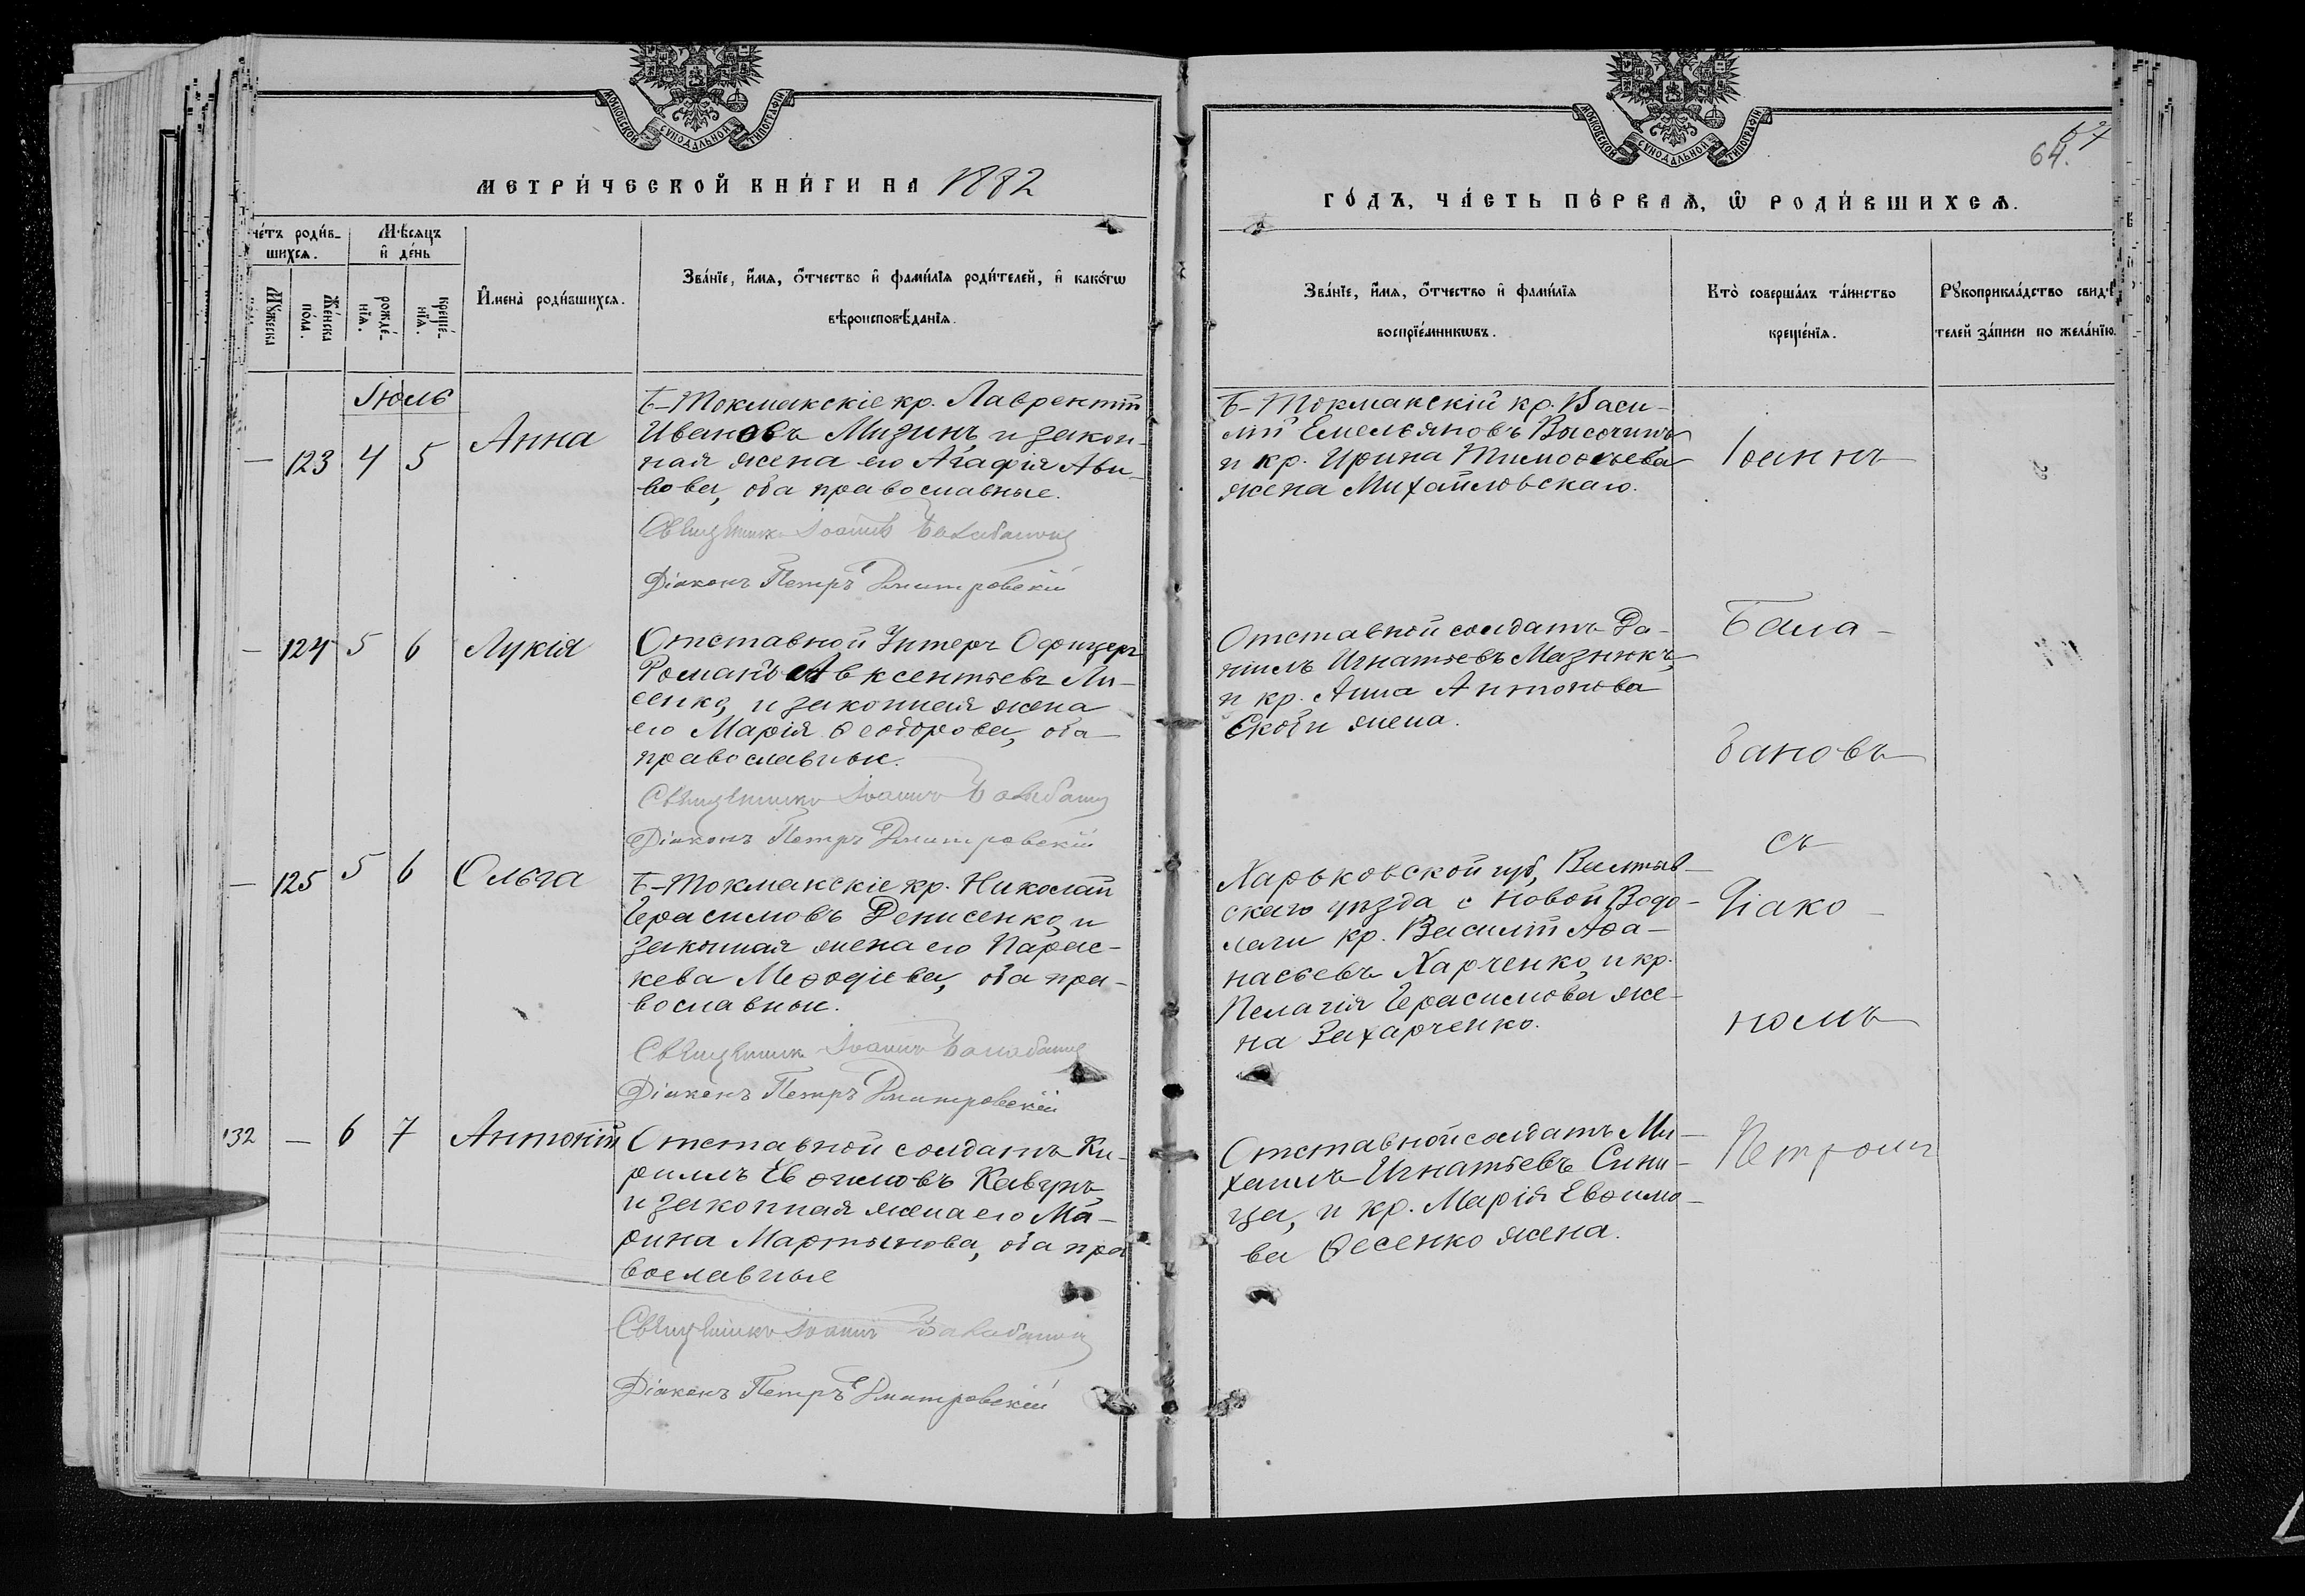 МОСКОВСКОЙ СѴНОДАЛЬНОЙ ТИПОГРАФІИ
МЕТРИ́ЧЕСКОЙ КНИ́ГИ НА 1882
че́тъ роди́в-
шихсѧ.
Мѣсяцъ
и҆ де́нь
Му́жеска
Же́нска
по́ла.
рожде́-
нїѧ.
креще́-
нїѧ.
И҆мена̀ роди́вшихсѧ.
Зва́нїе, и҆́мѧ, ѻ҆́тчество и҆ фами́лїѧ роди́телей, и҆ како́гѡ
вѣроисповѣ́данїѧ.
Іюль
— 123 4 5 Анна
Б-Токмакскіе кр. Лаврентій
Ивановъ Мизинъ, и закон-
ная жена его Агафія Ави-
вова, оба православные.
Священникъ Іоаннъ Балабановъ
Діаконъ Петръ Дмитровскій
— 124 5 6 Лукія
Отставной Унтеръ Офицеръ
Романъ Авксентьевъ Ли-
сенко, и законная жена
его Марія Ѳеодорова, оба
православные.
Священникъ Іоаннъ Балабановъ
Діаконъ Петръ Дмитровскій
— 125 5 6 Ольга
Б-Токмакскіе кр. Николай
Герасимовъ Денисенко, и
законная жена его Парас-
кева Меѳодіева, оба пра-
вославные.
Священникъ Іоаннъ Балабановъ
Діаконъ Петръ Дмитровскій
132 — 6 7 Антоній
Отставной солдатъ Ки-
риллъ Евѳимовъ Кавунъ,
и законная жена его Ма-
рина Мартынова, оба пра
вославные
Священникъ Іоаннъ Балабановъ
Діаконъ Петръ Дмитровскій
МОСКОВСКОЙ СѴНОДАЛЬНОЙ ТИПОГРАФІИ
64.
ГО́ДЪ, ЧА́СТЬ ПЕ́РВАѦ, Ѡ҆ РОДИ́ВШИХСѦ.
Зва́нїе, и҆́мѧ, ѻ҆́тчество и҆ фами́лїѧ
воспрїе́мникѡвъ.
Кто̀ соверша́лъ та́инство
креще́нїѧ.
Рꙋкоприкла́дство свидѣ́
телей за́писи по жела́нїю.
Б-Токмакскій кр. Васи-
лій Емельяновъ Высочинъ
и кр. Ирина Тимоѳеева
жена Михайловскаго.
Отставной солдатъ Да-
ніилъ Игнатьевъ Мазнюкъ,
и кр. Анна Антонова
Скоби жена.
Харьковской губ, Валтав-
скаго уѣзда с Новой Водо-
лаги кр. Василій Аѳа-
насьевъ Харченко, и кр.
Пелагія Герасимова же-
на Захарченко.
Отставной солдатъ Ми-
хаилъ Игнатьевъ Сини-
ца, и кр. Марія Евѳимо-
ва Ѳесенко жена.
Іоаннъ
Бала-
бановъ
съ
Діако-
номъ
Петромъ